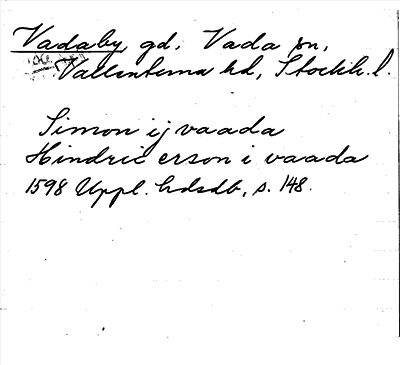 Vadaby, gd, Vada sn,
Vallentuna hd, Stockh. l.
Simon ij vaada
Hindric erson i vaada
1598 Uppl. hdsdb, s. 148.